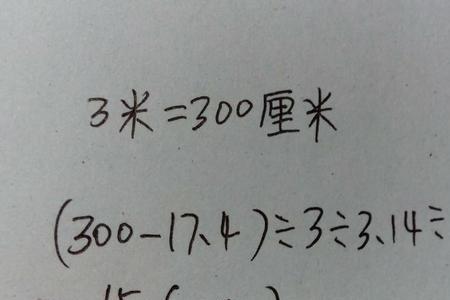 3米=300厘米
(300-17.4)÷3÷3.14÷
15(